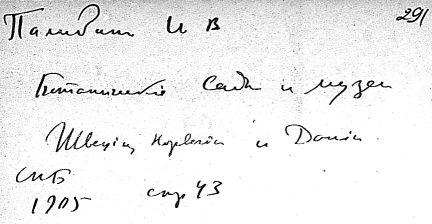 291
Палибин И В
Ботанические сады и музеи
Швеции Норвегии и Дании
СПБ
1905 стр 43